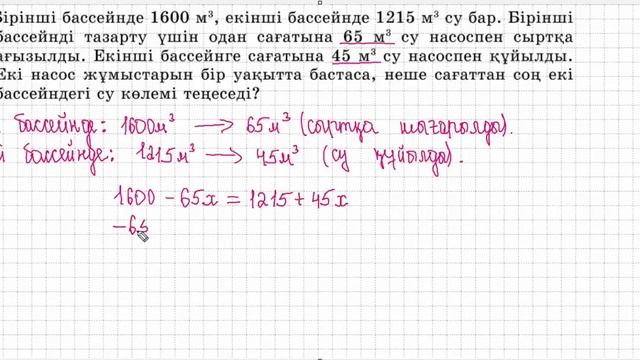 Бірінші бассейнде 1600 м³, екінші бассейнде 1215 м³ су бар. Бірінші
бассейнді тазарту үшін одан сағатына 65 м³ су насоспен сыртқа
ағызылды. Екінші бассейнге сағатына 45 м³ су насоспен құйылды.
Екі насос жұмыстарын бір уақытта бастаса, неше сағаттан соң екі
бассейндегі су көлемі теңеседі?
бассейнде: 1600м³ → 65м³ (сыртқа шығарылды).
бассейнде: 1215м³ → 45м³ (су құйылды).
1600 - 65x = 1215 + 45x
-65